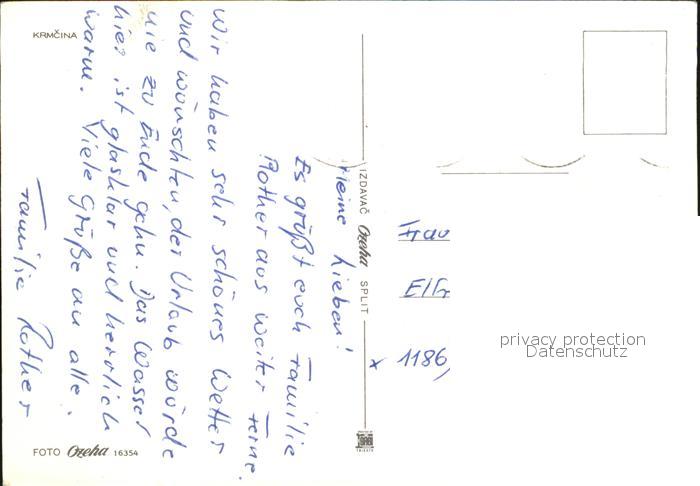 KRMČINA
Meine Lieben!
Es grüßt euch Familie
Rother aus weiter Ferne.
Wir haben sehr schönes Wetter
und wünschten, der Urlaub würde
nie zu Ende gehn. Das Wasser
hier ist glasklar und herrlich
warm. Viele Grüße an alle.
Familie Rother
IZDAVAČ Ozeha SPLIT
Frau
Elfr
x 1186,
privacy protection
Datenschutz
FOTO Ozeha 16354